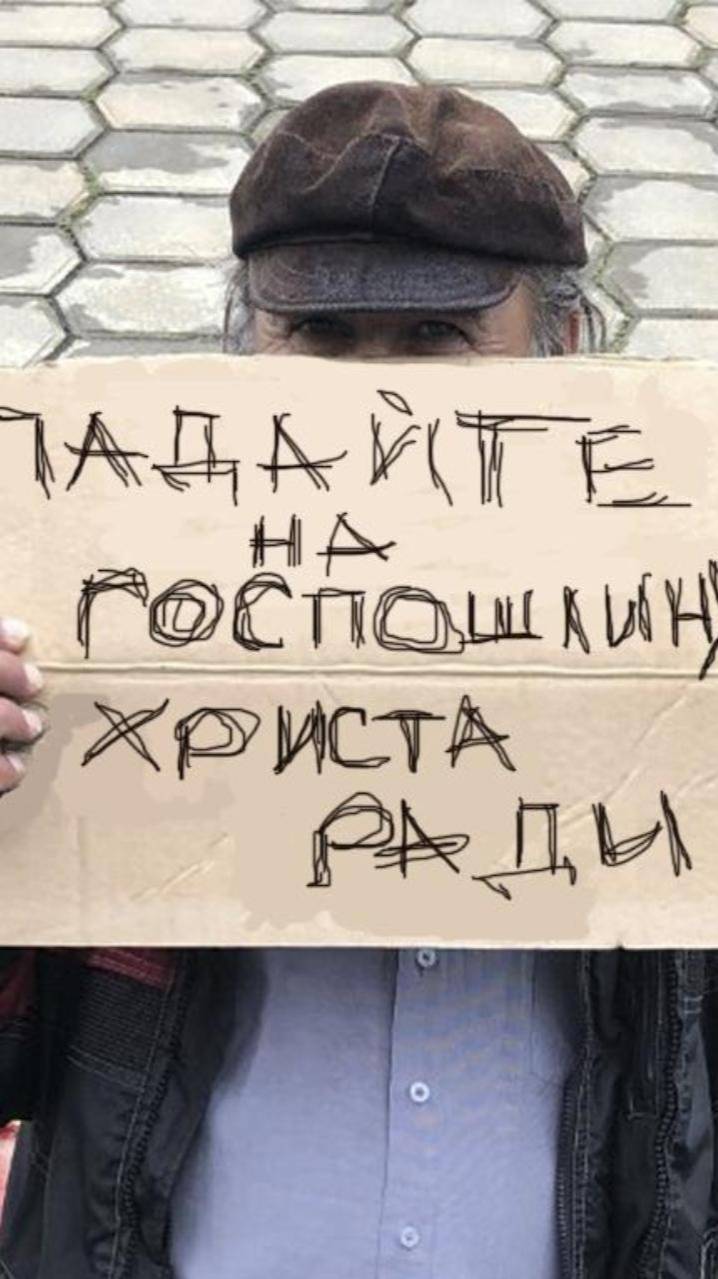 ПАДАЙТЕ
НА
ГОСПОШЛИНУ
ХРИСТА
РАДЫ